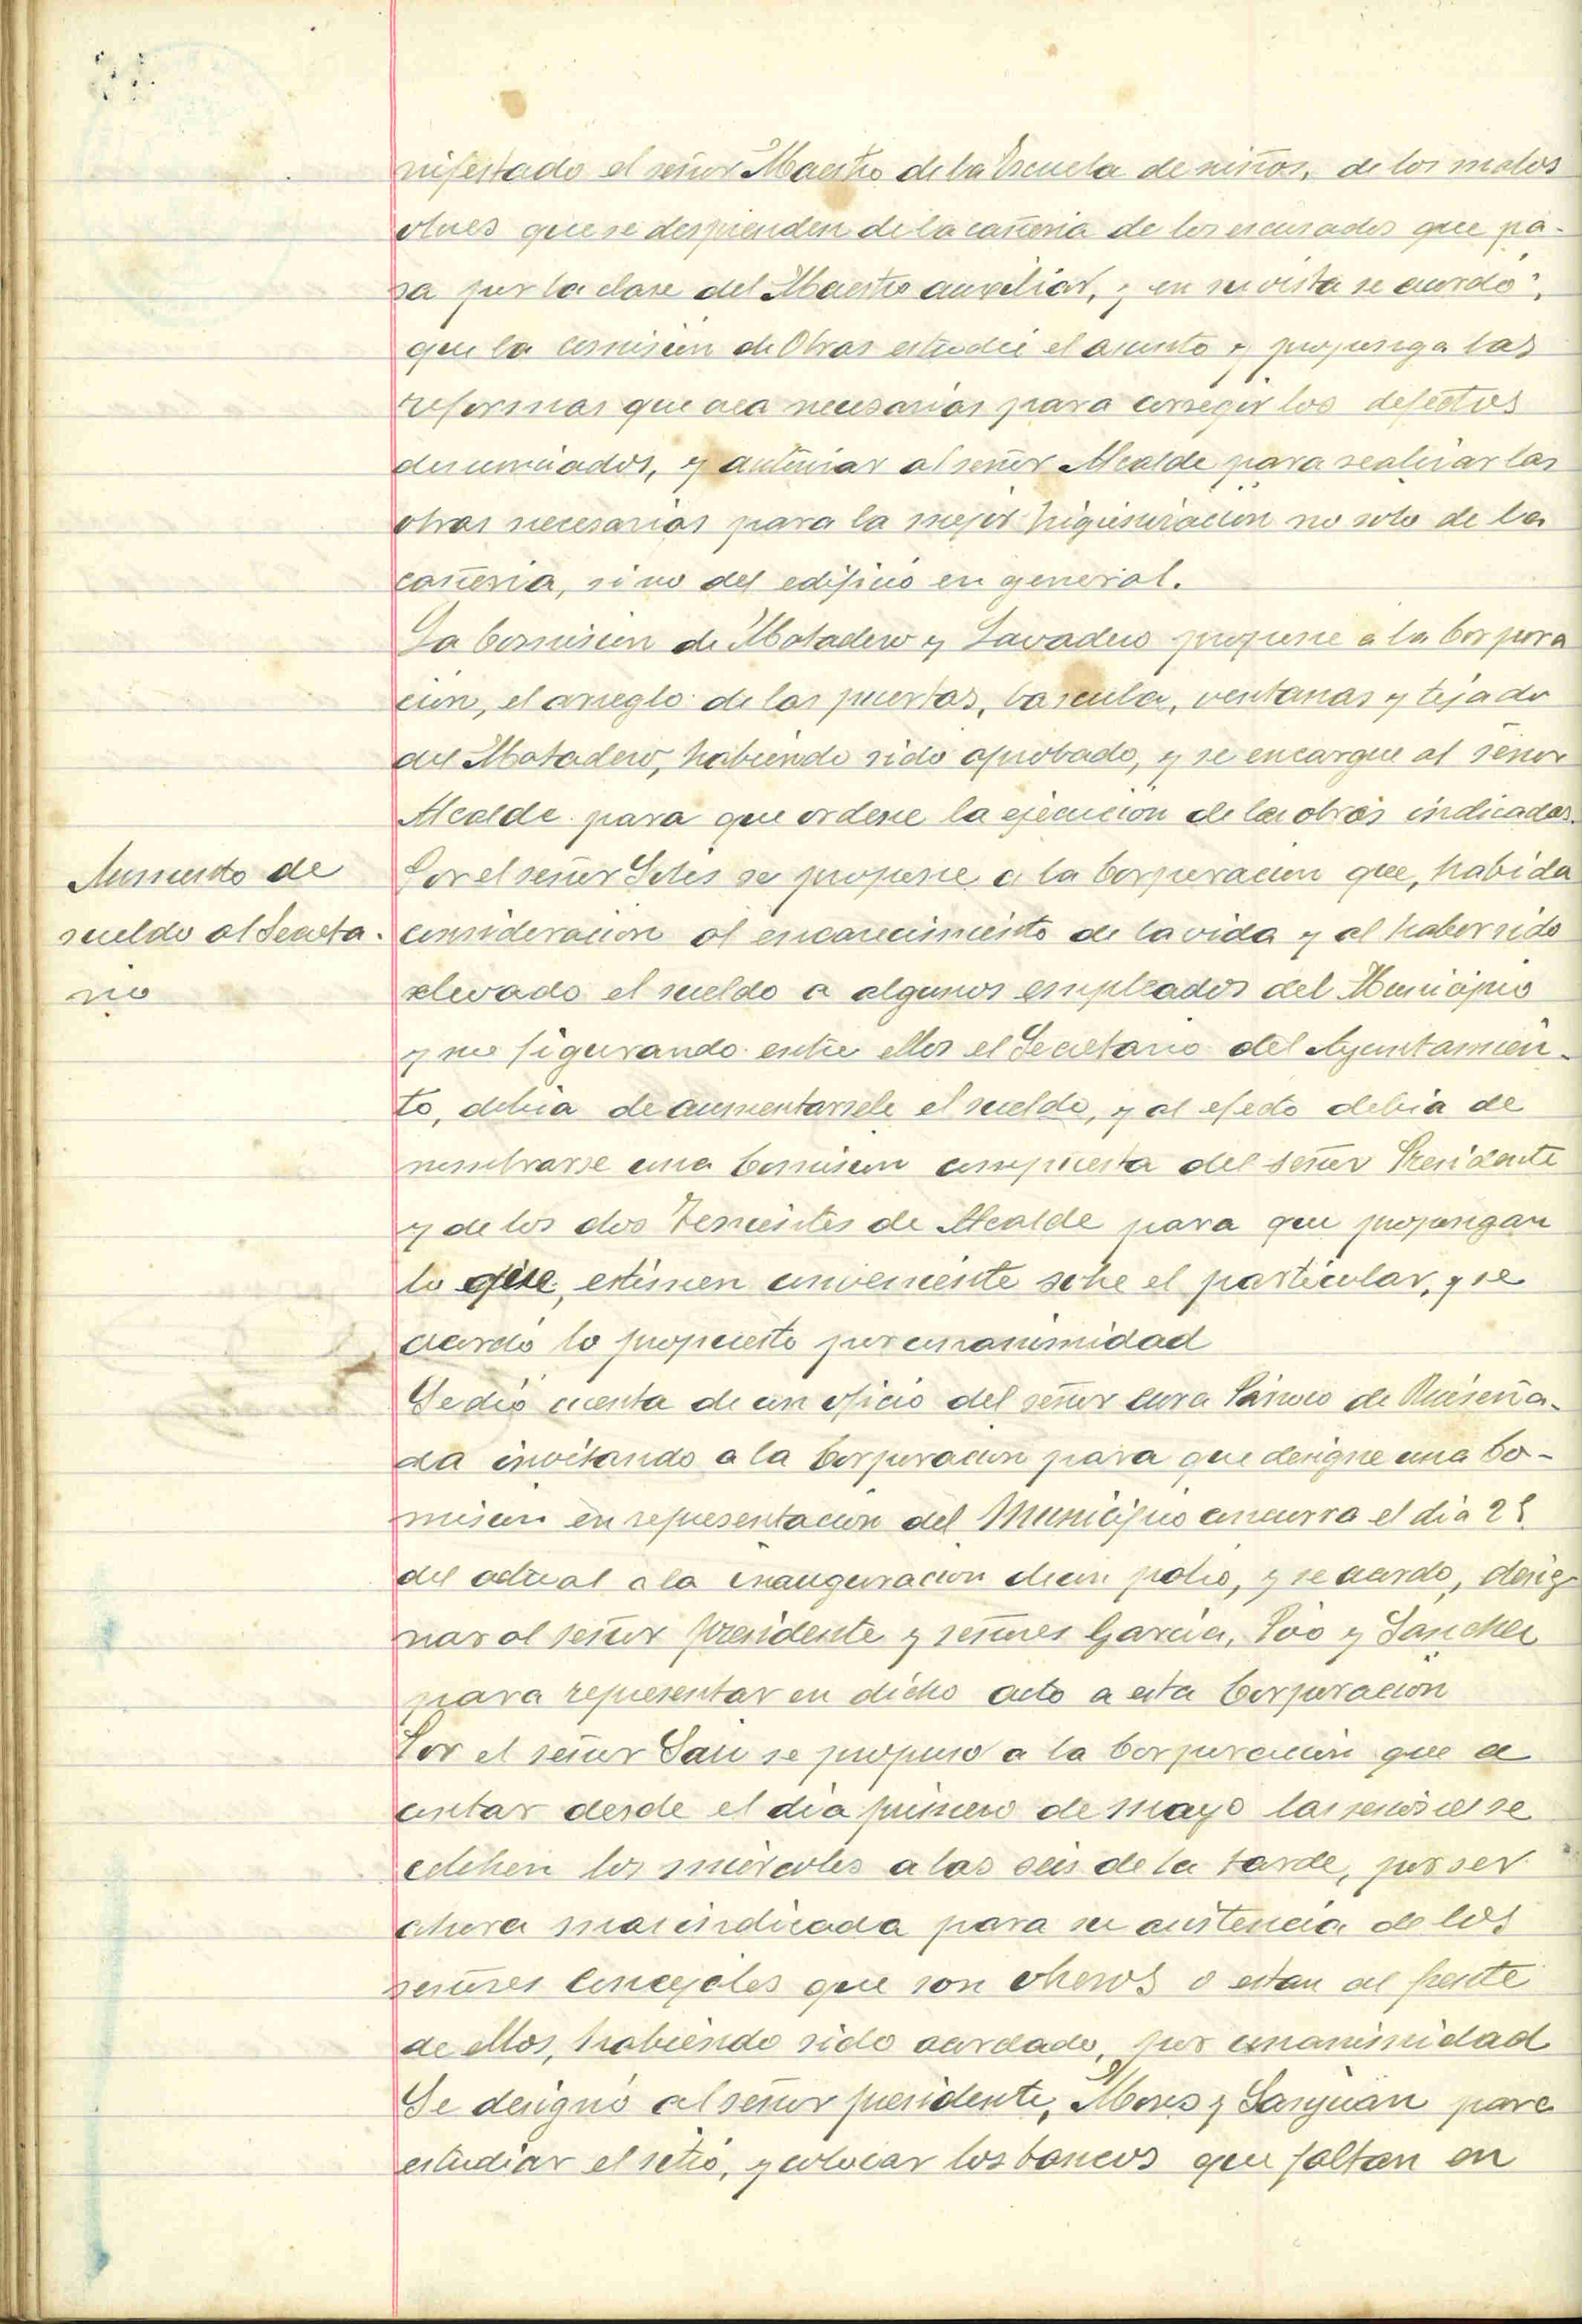 nifestado el señor Maestro de la Escuela de niños, de los malos
olores que se desprenden de la cañeria de los escusados que pa-
sa por la clase del Maestro auxiliar, y en su vista se acordó,
que la comisión de Obras estudie el asunto y proponga las
reformas que crea necesarias para corregir los defectos
denunciados, y autorizar al señor Alcalde para realizar las
obras necesarias para la mejor higienización no solo de la
cañeria, sino del edificio en general.
La Comisión de Matadero y Lavadero propone a la Corpora
ción, el arreglo de las puertas, bascula, ventanas y tejado
del Matadero, habiendo sido aprobado, y se encargue al señor
Alcalde para que ordene la ejecución de las obras indicadas.
Aumento de
sueldo al Secreta-
rio
Por el señor Soles se propone a la Corporación que, habida
consideración al encarecimiento de la vida y al haber sido
elevado el sueldo a algunos empleados del Municipio
y no figurando entre ellos el Secretario del Ayuntamien-
to, debia de aumentarsele el sueldo, y al efecto debia de
nombrarse una Comisión compuesta del señor Presidente
y de los dos Tenientes de Alcalde para que propongan
lo que estimen conveniente sobre el particular, y se
acordó lo propuesto por unanimidad
Se dió cuenta de un oficio del señor Cura Párroco de
da invitando a la Corporación para que designe una Co-
misión en representación del Municipio concurra el dia 28
del actual a la inauguración de un patio, y se acordó, desig
nar al señor presidente y señores Garcia, Pío y Sanchez
para representar en dicho acto a esta Corporación
Por el señor se propuso a la Corporación que a
contar desde el dia primero de mayo las sesiones se
celebren los miércoles a las seis de la tarde, por ser
ahora mas indicada para su asistencia de los
señores Concejales que son obreros o estan al frente
de ellos, habiendo sido acordado, por unanimidad
Se designó al señor presidente, Mores y Sanjuan para
estudiar el sitio, y colocar los bancos que faltan en